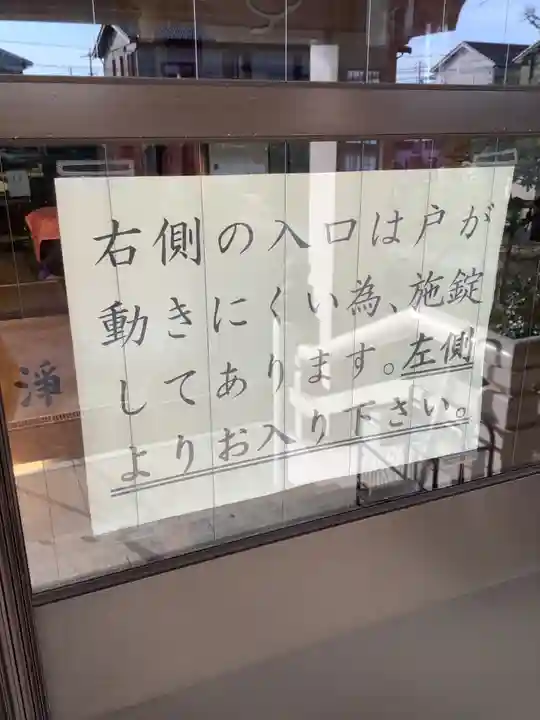 右側の入口は戸が
動きにくい為、施錠
してあります。左側
よりお入り下さい。
浄